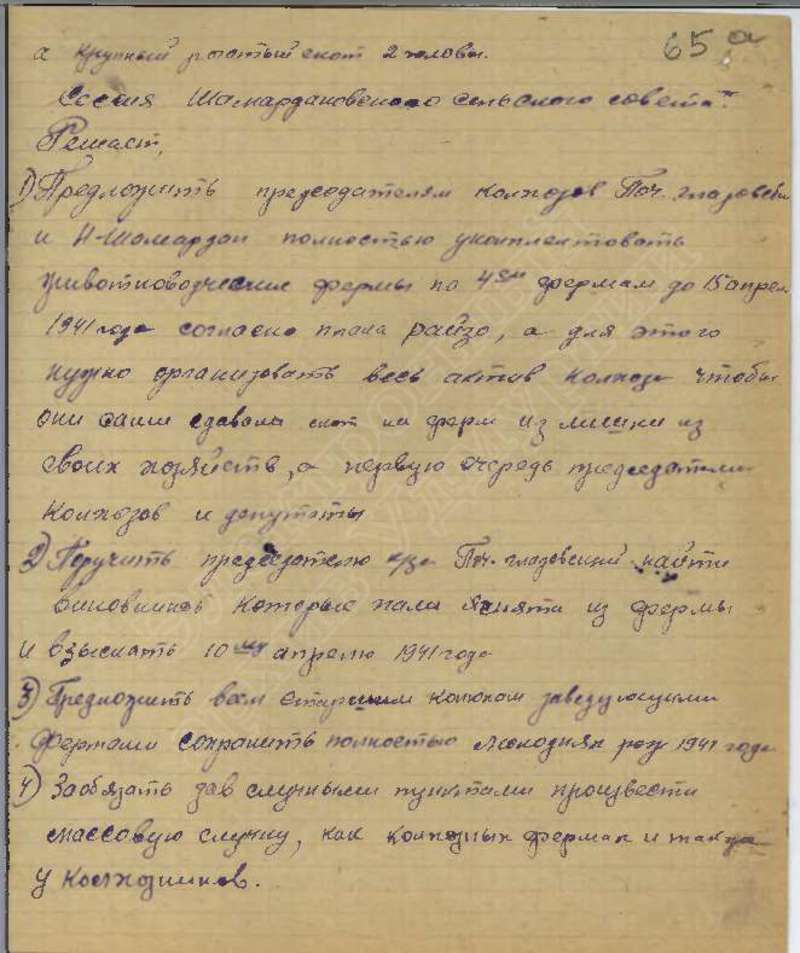 65 а
а крупный рогатый скот 2 головы.
Сессия Шамардановского сельского совета
Решает,
1) Предложить председателям колхозов Поч. глазовски
и Н-Шамардан полностью укомплектовать
животноводческие фермы по 4ем фермам до 15 апрел
1941 года согласно плана райзо, а для этого
нужно организовать весь актив колхоза чтобы
они сами сдавали скот на ферм излишки из
своих хозяйств, а первую очередь председатели
колхозов и депутаты
2) Поручить председателю к/за Поч. глазовский найти
виновников которые пали ягняти из фермы
и взыскать 10му апрелю 1941 года
3) Предложить всем старшим конюхом заведующими
фермами сохранить полностью молодняк 1941 года
4) Заобязать зав случными пунктами произвести
массовую случку, как колхозных фермах и также
у колхозников.